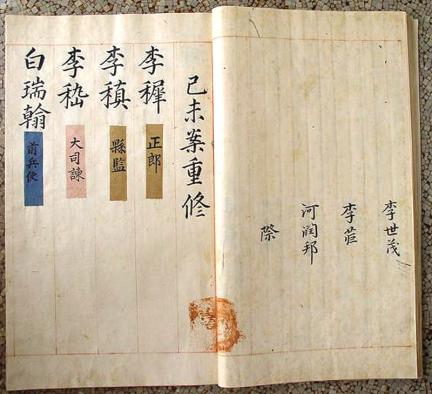 李世茂
李莊
河潤邦
際
己未案重修
李穉
正郎
李稹
縣監
李嵆
大司諫
白瑞翰
前兵使